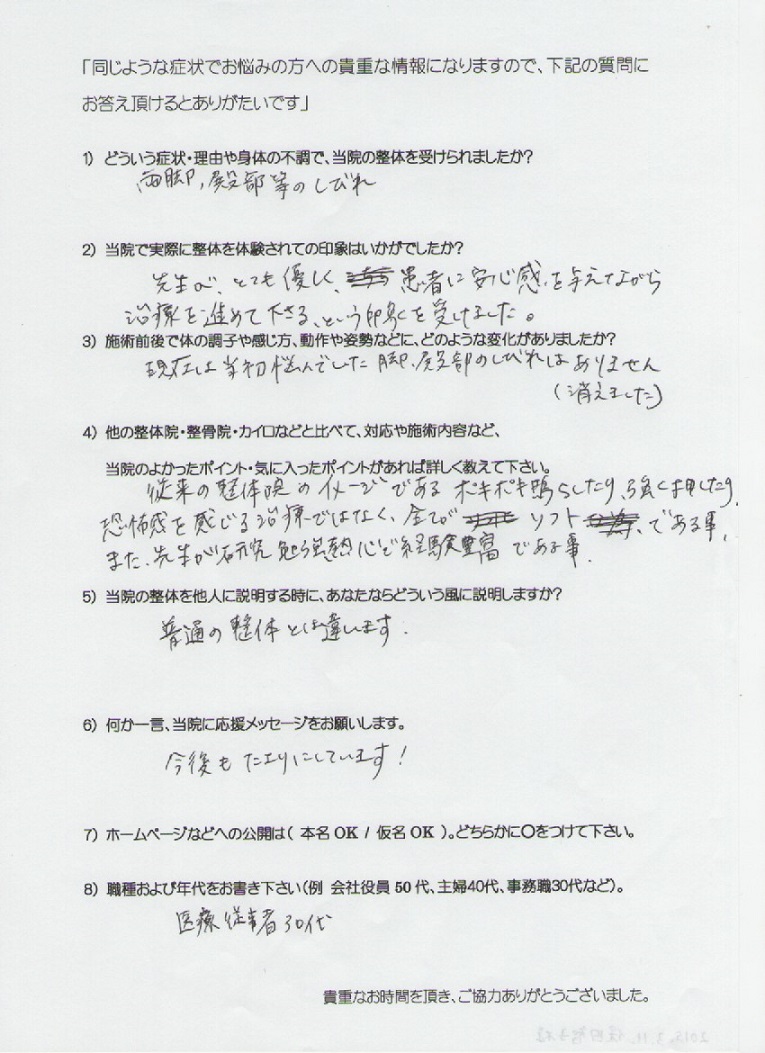 「同じような症状でお悩みの方への貴重な情報になりますので、下記の質問に
お答え頂けるとありがたいです」
1) どういう症状・理由や身体の不調で、当院の整体を受けられましたか?
両脚、臀部等のしびれ
2) 当院で実際に整体を体験されての印象はいかがでしたか?
先生が、とても優しく、患者に安心感を与えながら
治療を進めて下さる、という印象を受けました。
3) 施術前後で体の調子や感じ方、動作や姿勢などに、どのような変化がありましたか?
現在は当初悩んでした脚、臀部のしびれはありません
(消えました)
4) 他の整体院・整骨院・カイロなどと比べて、対応や施術内容など、
当院のよかったポイント・気に入ったポイントがあれば詳しく教えて下さい。
従来の整体院のイメージである ポキポキ鳴らしたり、強く押したり、
恐怖感を感じる治療ではなく、全てが ソフト、である事、
また、先生が研究勉強熱心で経験豊富である事.
5) 当院の整体を他人に説明する時に、あなたならどういう風に説明しますか?
普通の整体とは違います.
6) 何か一言、当院に応援メッセージをお願いします。
今後もたよりにしています!
7) ホームページなどへの公開は( 本名OK / 仮名OK )。どちらかに〇をつけて下さい。
8) 職種および年代をお書き下さい(例 会社役員50代、主婦40代、事務職30代など)。
医療従事者30代
貴重なお時間を頂き、ご協力ありがとうございました。